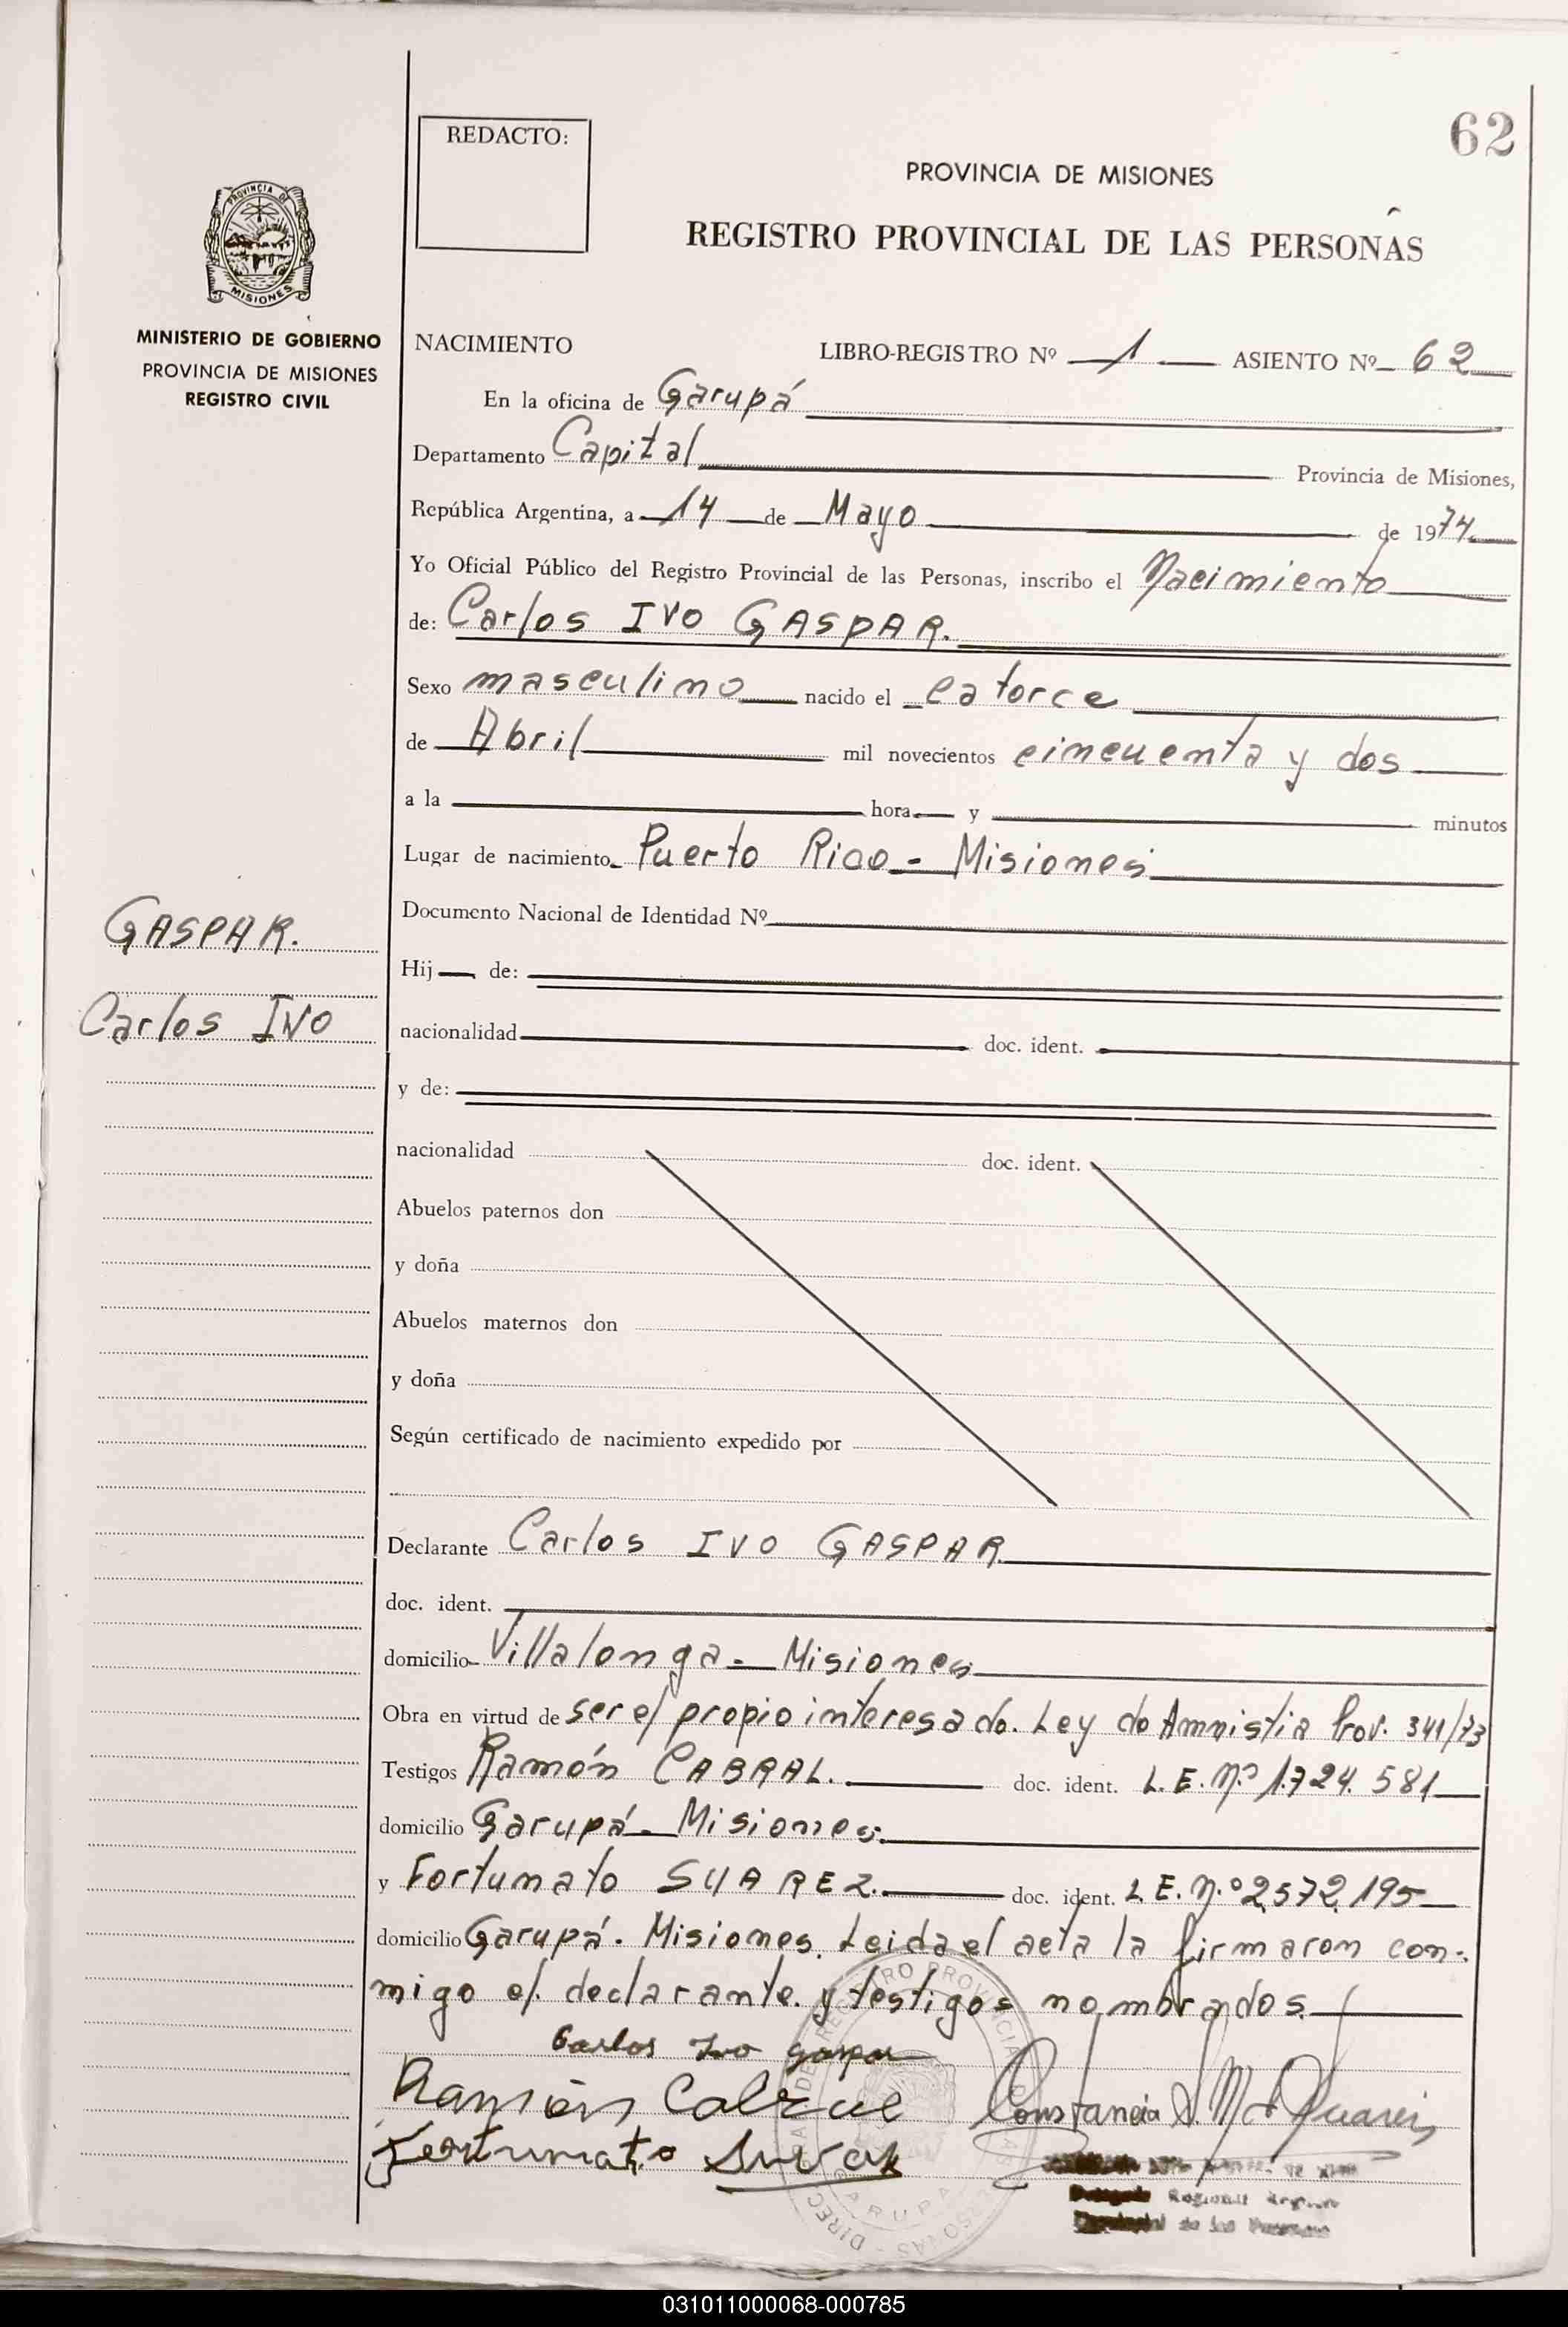 62
REDACTO:
PROVINCIA DE MISIONES
REGISTRO PROVINCIAL DE LAS PERSONAS
PROVINCIA DE
MISIONES
MINISTERIO DE GOBIERNO
PROVINCIA DE MISIONES
REGISTRO CIVIL
NACIMIENTO LIBRO-REGISTRO Nº 1 ASIENTO Nº 62
En la oficina de Garupá
Departamento Capital Provincia de Misiones,
República Argentina, a 14 de Mayo de 1974.
Yo Oficial Público del Registro Provincial de las Personas, inscribo el Nacimiento
de: Carlos IVO GASPAR.
Sexo masculino nacido el catorce
de Abril mil novecientos cincuenta y dos
a la hora y minutos
Lugar de nacimiento Puerto Rico - Misiones
Documento Nacional de Identidad Nº
GASPAR.
Carlos IVO
Hij de:
nacionalidad doc. ident.
y de:
nacionalidad doc. ident.
Abuelos paternos don
y doña
Abuelos maternos don
y doña
Según certificado de nacimiento expedido por
Declarante Carlos IVO GASPAR
doc. ident.
domicilio Villalonga - Misiones
Obra en virtud de ser el propio interesado. Ley de Amnistia Prov. 341/73
Testigos Ramón CABRAL. doc. ident. L.E. Nº 1.724.581
domicilio Garupá - Misiones.
y Fortunato SUAREZ. doc. ident. L.E. N.º 2.572.195
domicilio Garupá. Misiones. Leida el acta la firmaron con-
migo el declarante y testigos nombrados.
Carlos Ivo Gaspar
Ramón Cabral
Fortunato
Constancia
Regional
de las
GARUPA
031011000068-000785